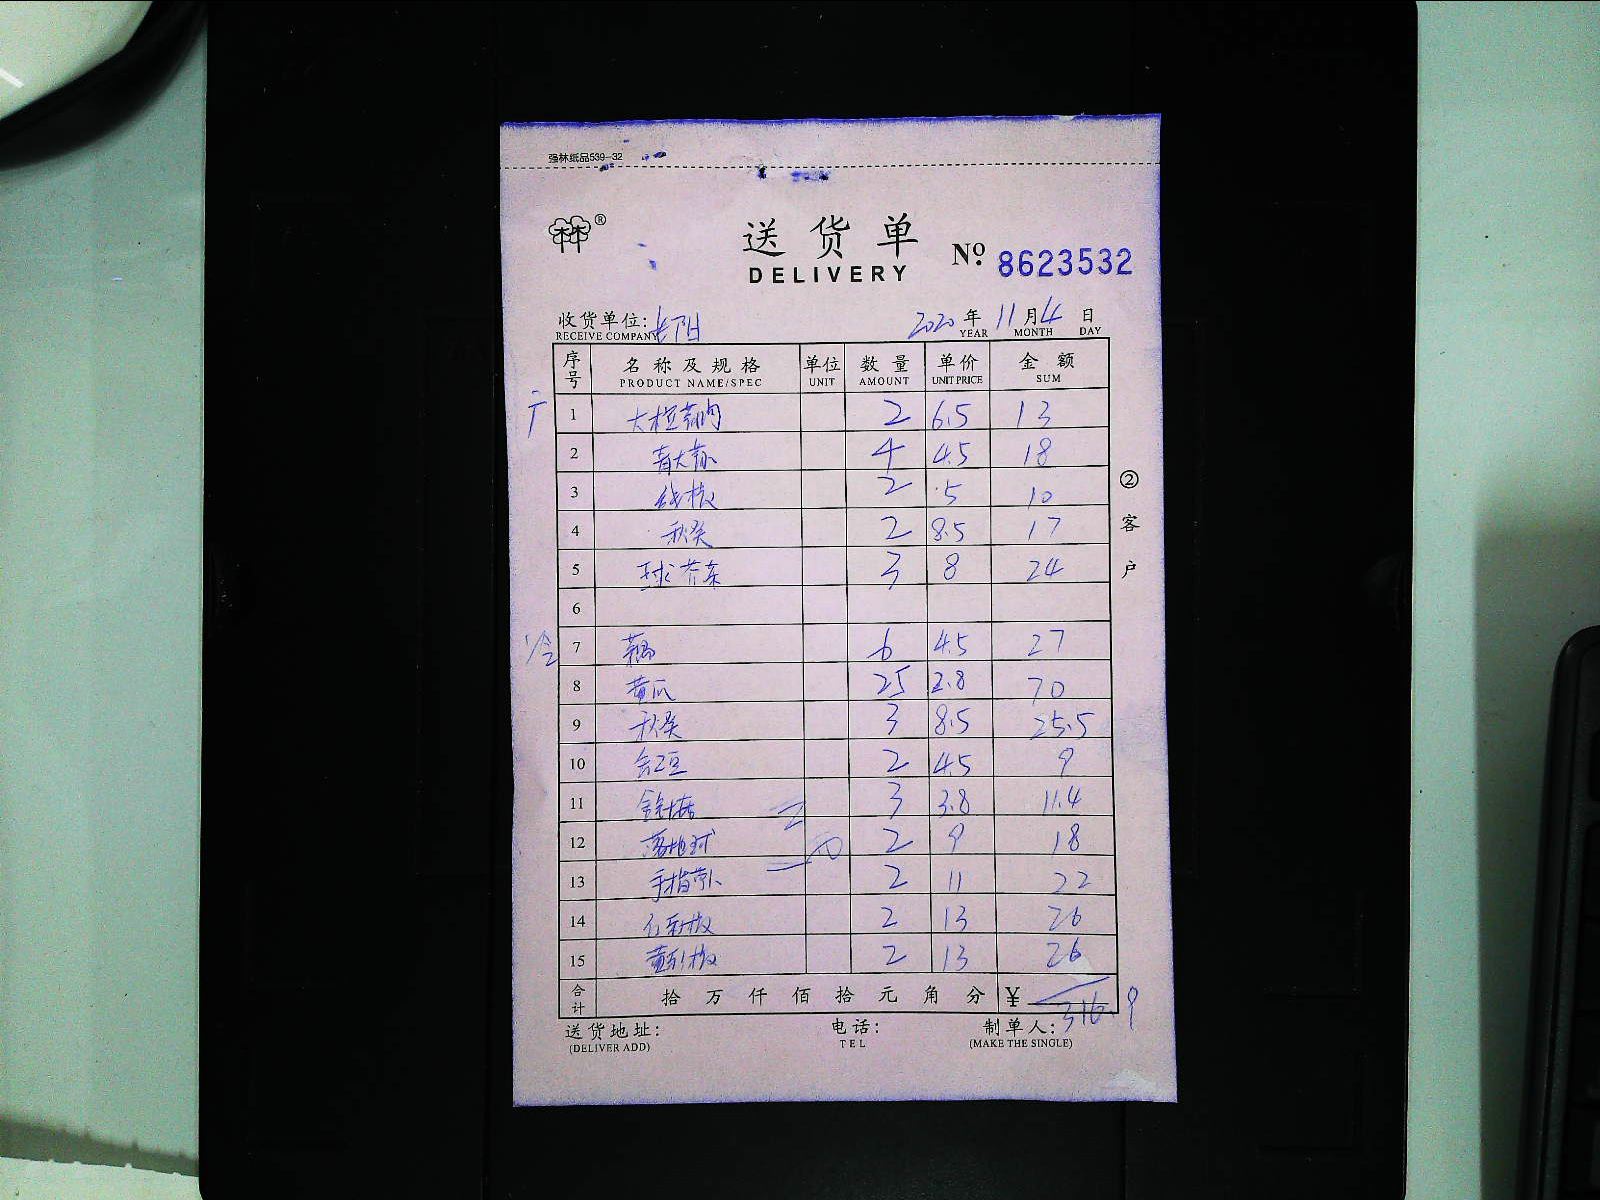 强林纸品539-32
林®
送货单
DELIVERY
№ 8623532
收货单位: 长阳 2020年11月4日
RECEIVE COMPANY YEAR MONTH DAY
序号 名称及规格 单位 数量 单价 金额
PRODUCT NAME/SPEC UNIT AMOUNT UNIT PRICE SUM
1 2 6.5 13
2 4 4.5 18
3 线椒 2 5 10
4 秋葵 2 8.5 17
5 球芥 3 8 24
6
冷 7 藕 6 4.5 27
8 黄瓜 25 2.8 70
9 秋葵 3 8.5 25.5
10 2 4.5 9
11 3 3.8 11.4
12 2 9 18
13 手指 2 11 22
14 2 13 26
15 黄彩椒 2 13 26
合计 拾万仟佰拾元角分 ¥ 316.9
② 客户
送货地址: 电话: 制单人:
(DELIVER ADD) TEL (MAKE THE SINGLE)